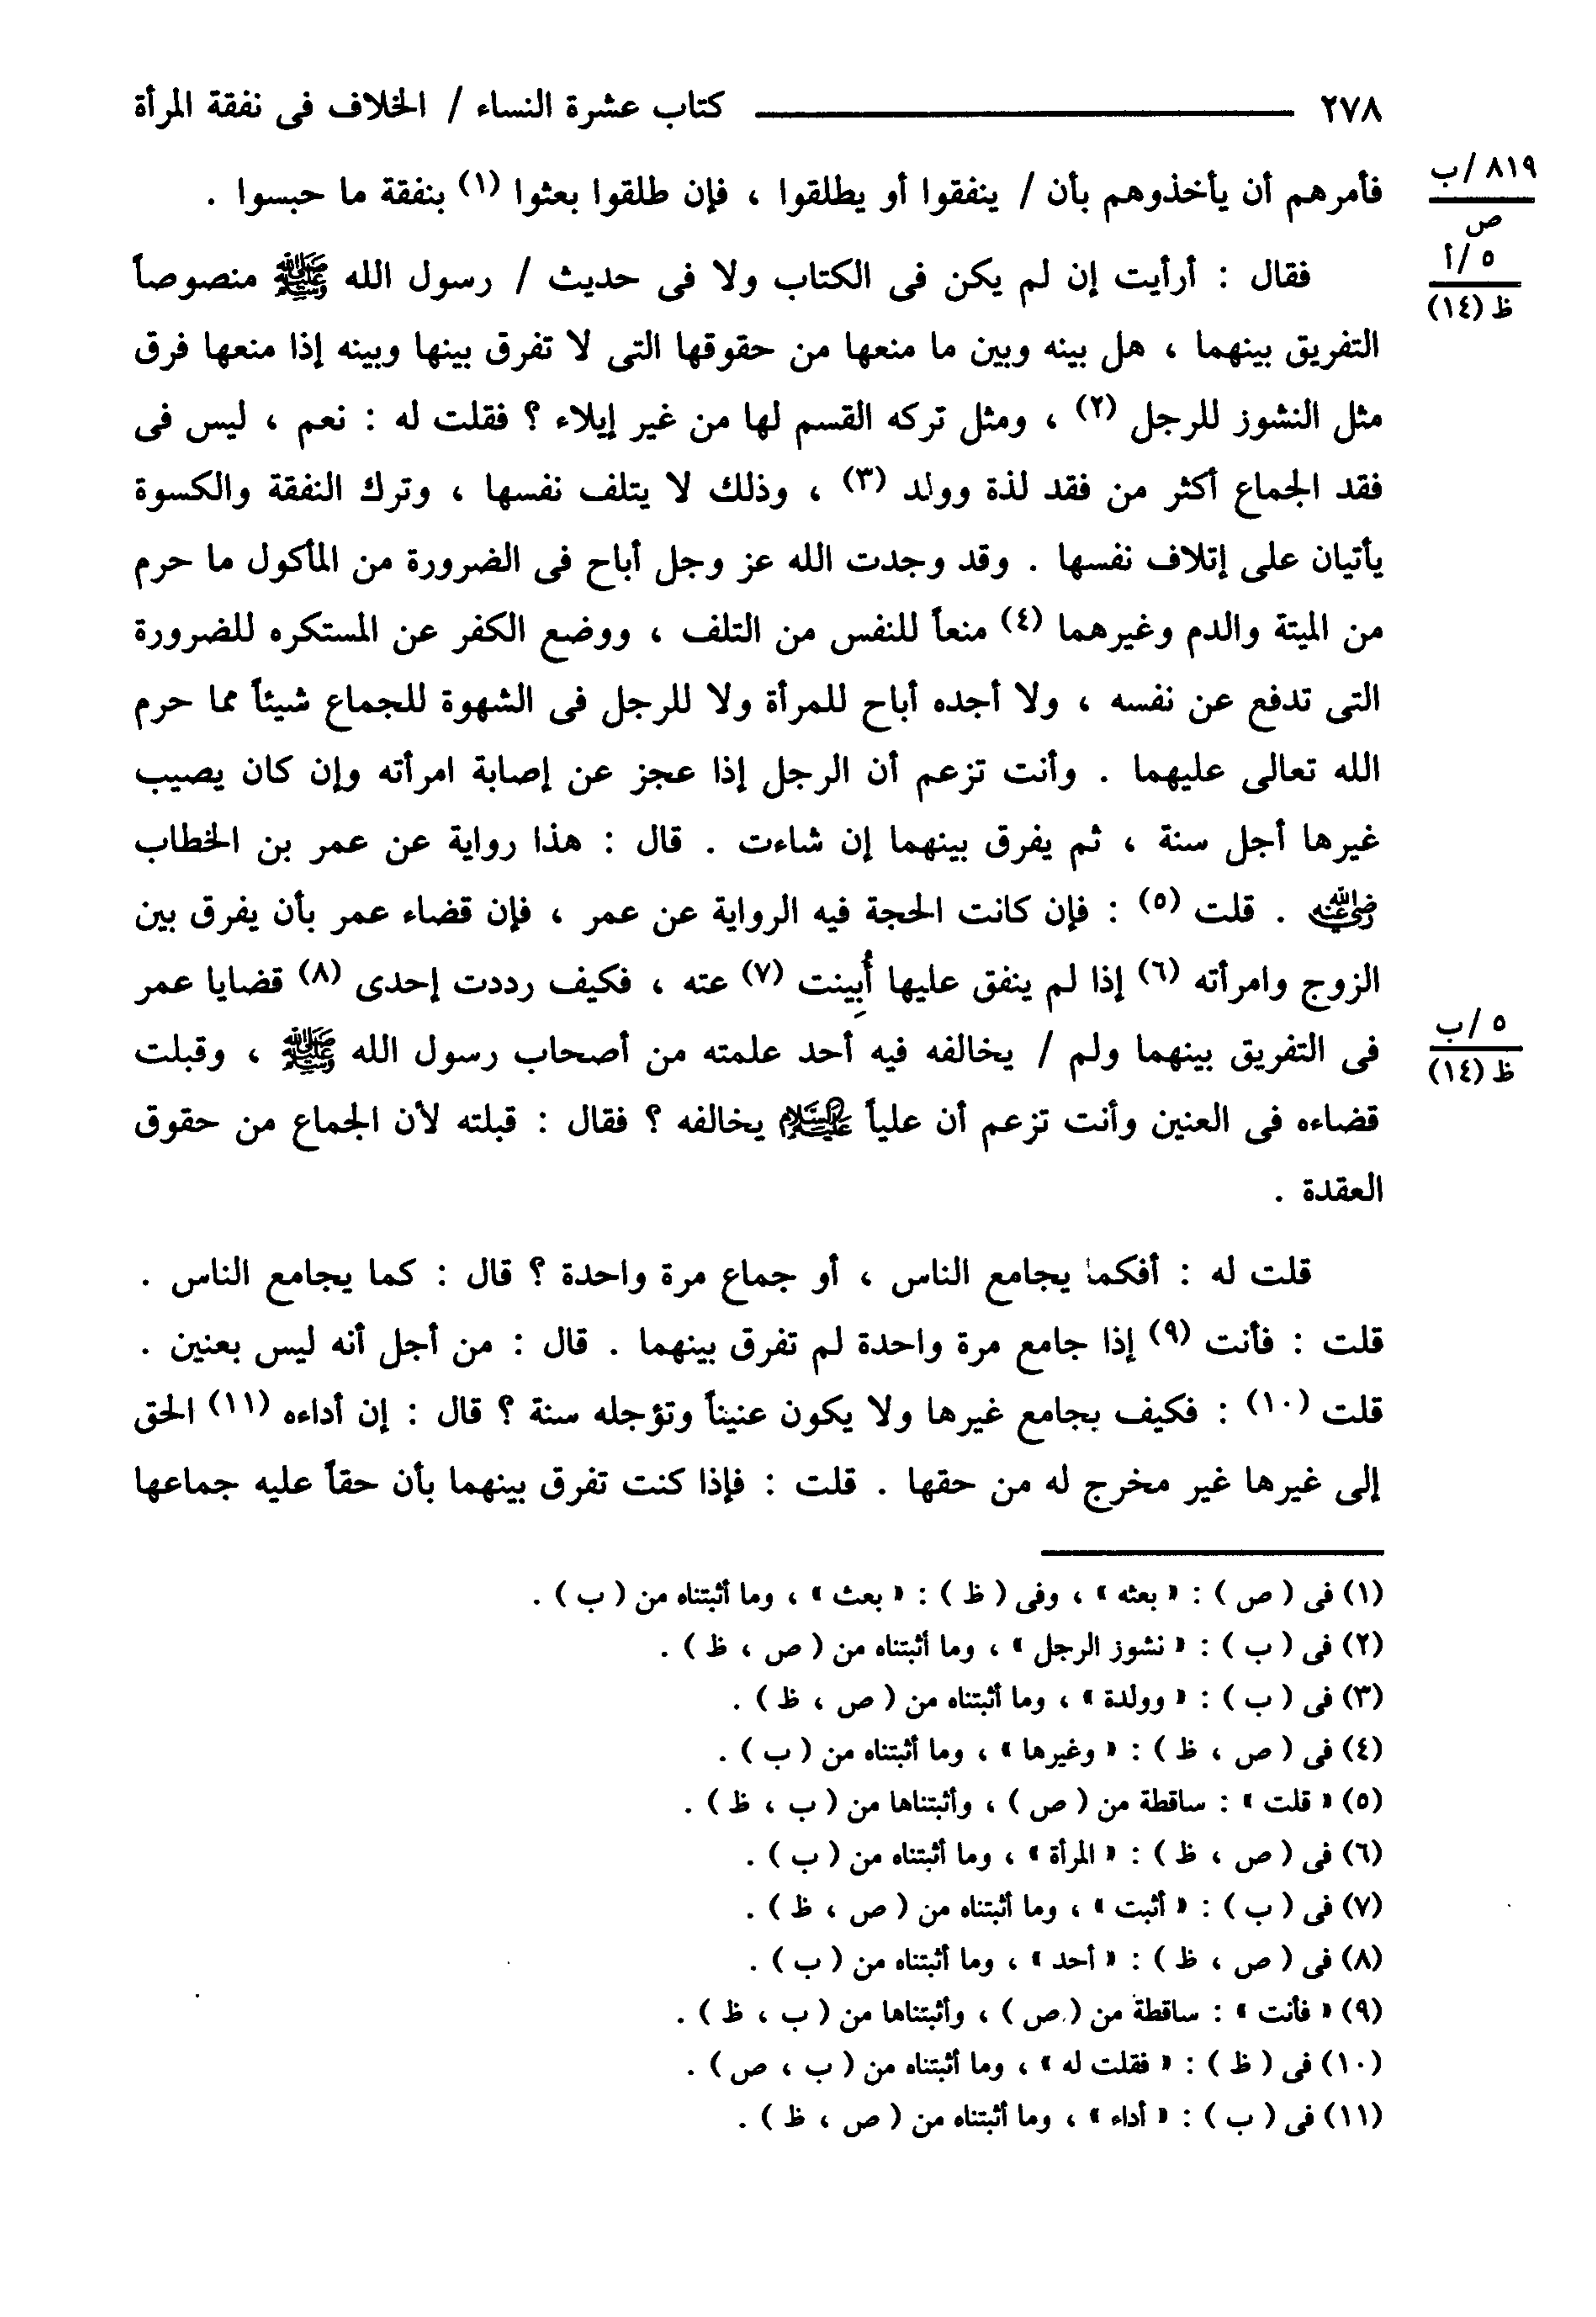 ٢٧٨ كتاب عشرة النساء / الخلاف فى نفقة المرأة
فأمرهم أن يأخذوهم بأن / ينفقوا أو يطلقوا ، فإن طلقوا بعثوا (١) بنفقة ما حبسوا .
٨١٩/ ب
ص
فقال : أرأيت إن لم يكن فى الكتاب ولا فى حديث / رسول الله ﷺ منصوصاً
٥ /أ
ظ (١٤)
التفريق بينهما ، هل بينه وبين ما منعها من حقوقها التى لا تفرق بينها وبينه إذا منعها فرق
مثل النشوز للرجل (٢) ، ومثل تركه القسم لها من غير إيلاء ؟ فقلت له : نعم ، ليس فى
فقد الجماع أكثر من فقد لذة وولد (٣) ، وذلك لا يتلف نفسها ، وترك النفقة والكسوة
يأتيان على إتلاف نفسها . وقد وجدت الله عز وجل أباح فى الضرورة من المأكول ما حرم
من الميتة والدم وغيرهما (٤) منعاً للنفس من التلف ، ووضع الكفر عن المستكره للضرورة
التى تدفع عن نفسه ، ولا أجده أباح للمرأة ولا للرجل فى الشهوة للجماع شيئاً مما حرم
الله تعالى عليهما . وأنت تزعم أن الرجل إذا عجز عن إصابة امرأته وإن كان يصيب
غيرها أجل سنة ، ثم يفرق بينهما إن شاءت . قال : هذا رواية عن عمر بن الخطاب
رضي الله عنه . قلت (٥) : فإن كانت الحجة فيه الرواية عن عمر ، فإن قضاء عمر بأن يفرق بين
الزوج وامرأته (٦) إذا لم ينفق عليها أُبِينت (٧) عته ، فكيف رددت إحدى (٨) قضايا عمر
فى التفريق بينهما ولم / يخالفه فيه أحد علمته من أصحاب رسول الله ﷺ ، وقبلت
٥ /ب
ظ (١٤)
قضاءه فى العنين وأنت تزعم أن علياً عليه السلام يخالفه ؟ فقال : قبلته لأن الجماع من حقوق
العقدة .
قلت له : أفكما يجامع الناس ، أو جماع مرة واحدة ؟ قال : كما يجامع الناس .
قلت : فأنت (٩) إذا جامع مرة واحدة لم تفرق بينهما . قال : من أجل أنه ليس بعنين .
قلت (١٠) : فكيف يجامع غيرها ولا يكون عنيناً وتؤجله سنة ؟ قال : إن أداءه (١١) الحق
إلى غيرها غير مخرج له من حقها . قلت : فإذا كنت تفرق بينهما بأن حقاً عليه جماعها
(١) فى ( ص ) : « بعثه » ، وفى ( ظ ) : « بعث » ، وما أثبتناه من ( ب ) .
(٢) فى ( ب ) : « نشوز الرجل » ، وما أثبتناه من ( ص ، ظ ) .
(٣) فى ( ب ) : « وولدة » ، وما أثبتناه من ( ص ، ظ ) .
(٤) فى ( ص ، ظ ) : « وغيرها » ، وما أثبتناه من ( ب ) .
(٥) « قلت » : ساقطة من ( ص ) ، وأثبتناها من ( ب ، ظ ) .
(٦) فى ( ص ، ظ ) : « المرأة » ، وما أثبتناه من ( ب ) .
(٧) فى ( ب ) : « أثبت » ، وما أثبتناه من ( ص ، ظ ) .
(٨) فى ( ص ، ظ ) : « أحد » ، وما أثبتناه من ( ب ) .
(٩) « فأنت » : ساقطة من ( ص ) ، وأثبتناها من ( ب ، ظ ) .
(١٠) فى ( ظ ) : « فقلت له » ، وما أثبتناه من ( ب ، ص ) .
(١١) فى ( ب ) : « أداء » ، وما أثبتناه من ( ص ، ظ ) .